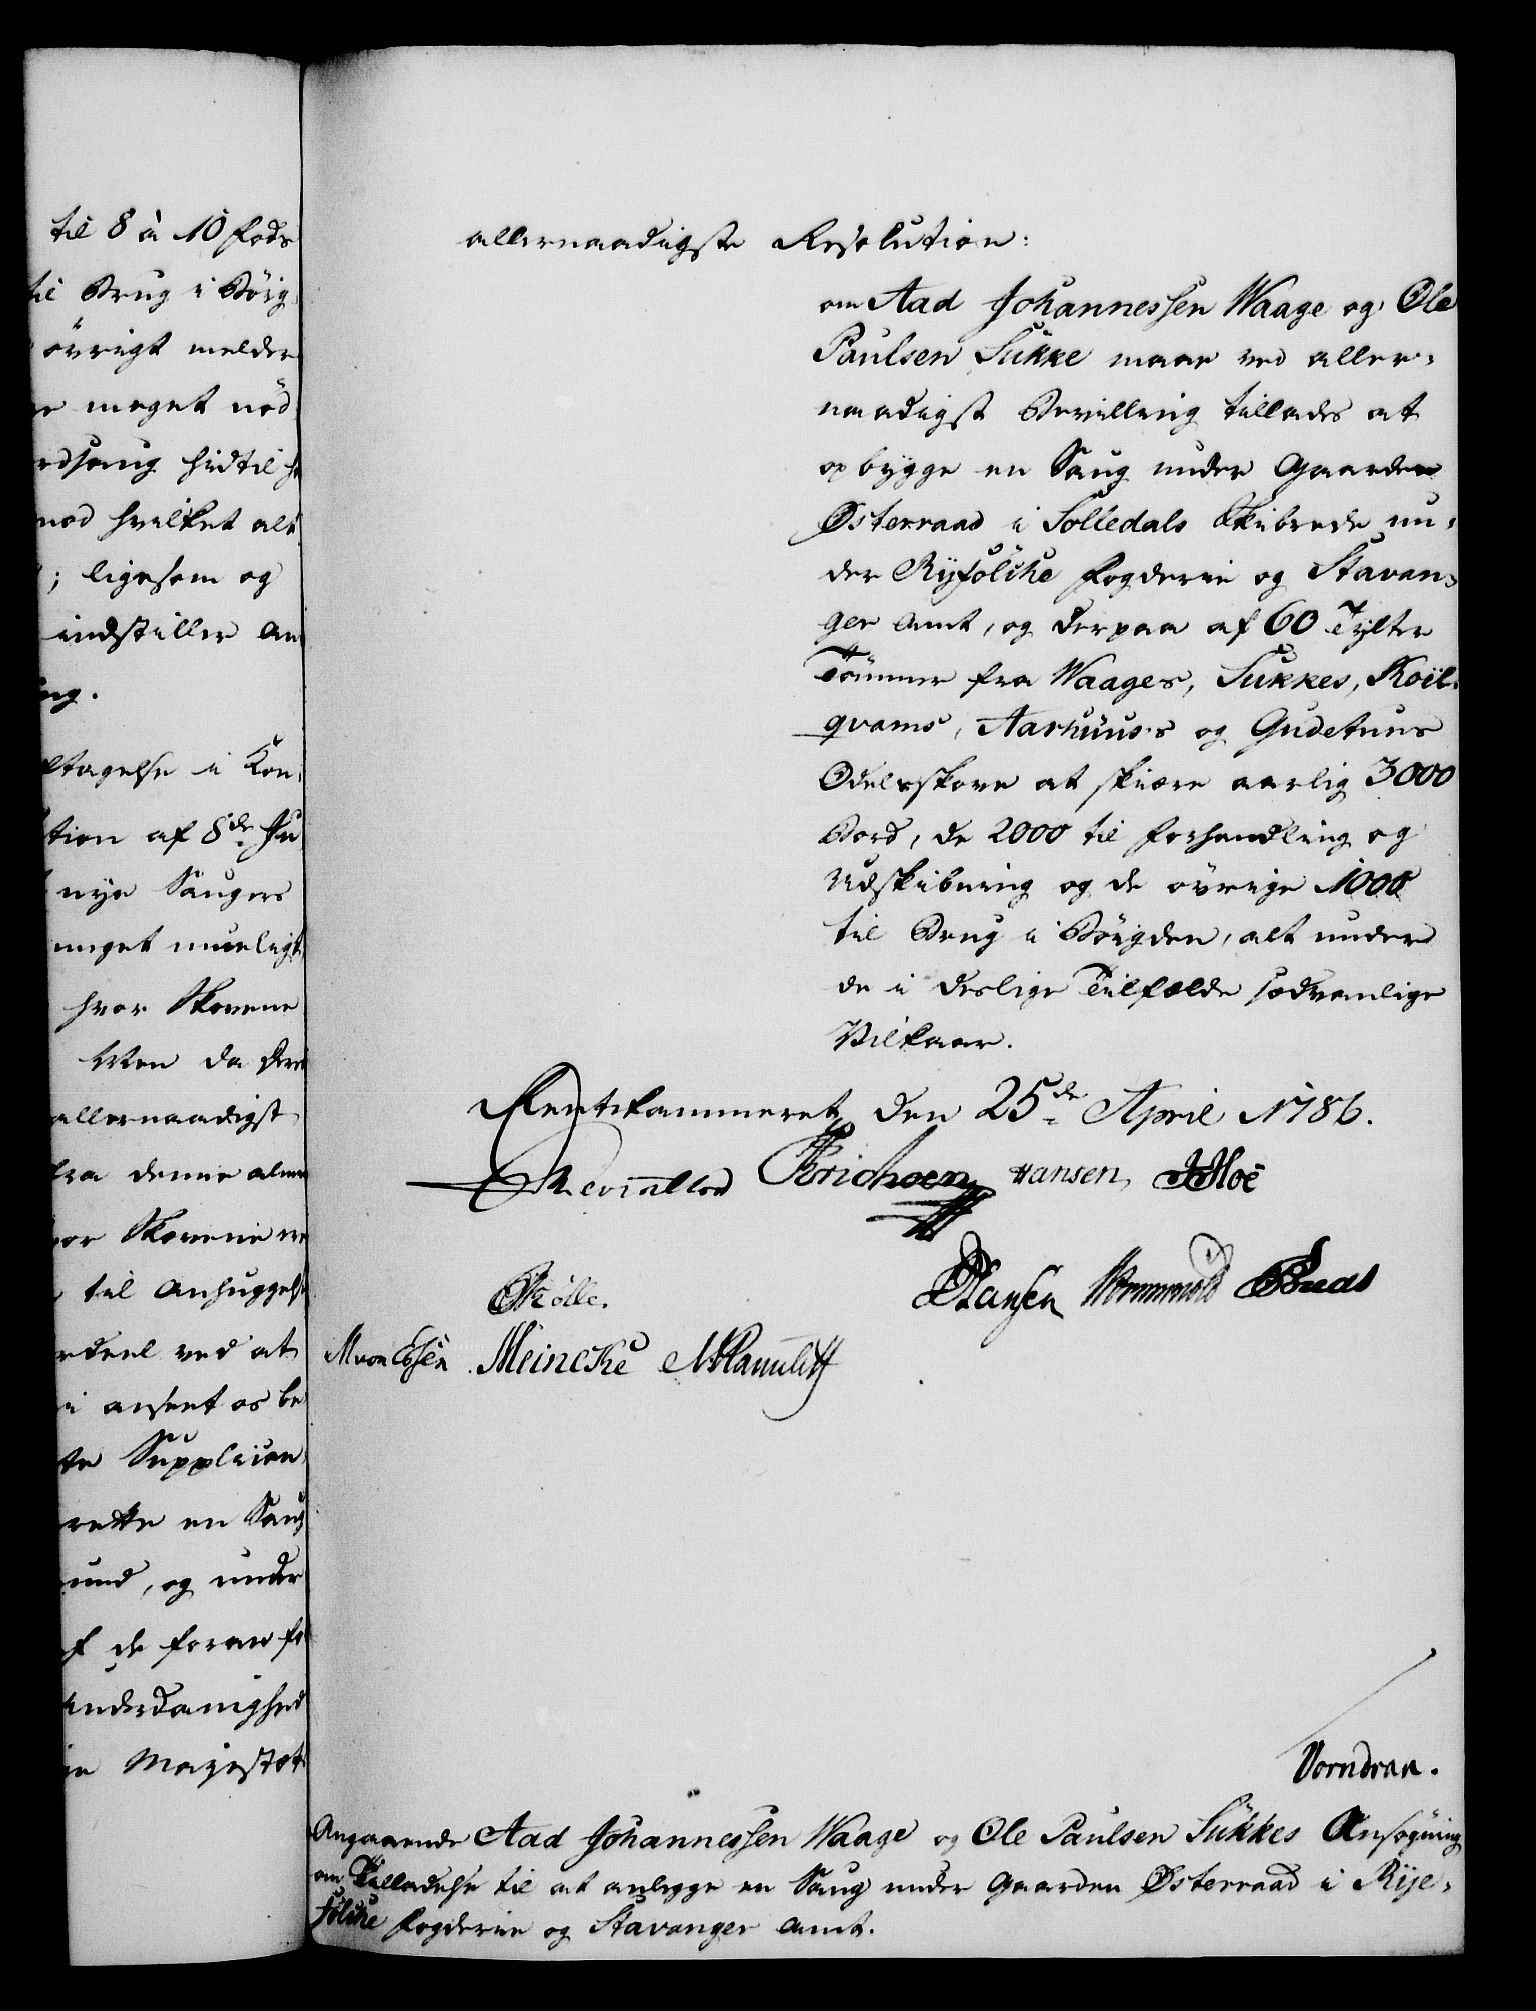 til 8 à 10 fods
til Brug i Böig
övrigt melder
meget nöd
hidtil
hvilket alt
; ligesom og
indstiller an
ng.
tagelse i Kon-
tion af 8de Ju
nye Saugers
meget mueligt
hvor Skovene
Men da
allernaadigst
fra denne
Skovene
til Anhuggelse
ved at
anseet os be
Supplican
rette en Saug
und, og under
f de foran
Underdanighed
Majestæt
allernaadigste Resolution:
om Aad Johannessen Waage og Ole
Paulsen Sukke maae ved aller-
naadigst Bevilling tillades at
opbygge en Saug under Gaarden
Østerraad i Solledals Skibrede un-
der Ryfölche Fogderie og Stavan-
ger Amt, og derpaa af 60 Tylter
Tömmer fra Waages, Sukkes, Koil-
qvams, Aarhuus's og Gudetuns
Odelsskove at skiære aarlig 3000
Bord, de 2000 til Forhandling og
Udskibning og de övrige 1000
til Brug i Böigden, alt under
de i deslige Tilfælde sædvanlige
Vilkaar.
Rentekammeret den 25de April 1786.
Erichsen Hansen
Hansen Wormskiold
Rölle.
M von Essen Meincke
Vorndran.
Angaaende Aad Johannessen Waage og Ole Paulsen Sukkes Ansögning
om Tilladelse til at anlegge en Saug under Gaarden Østerraad i Rije-
fölche Fogderie og Stavanger Amt.